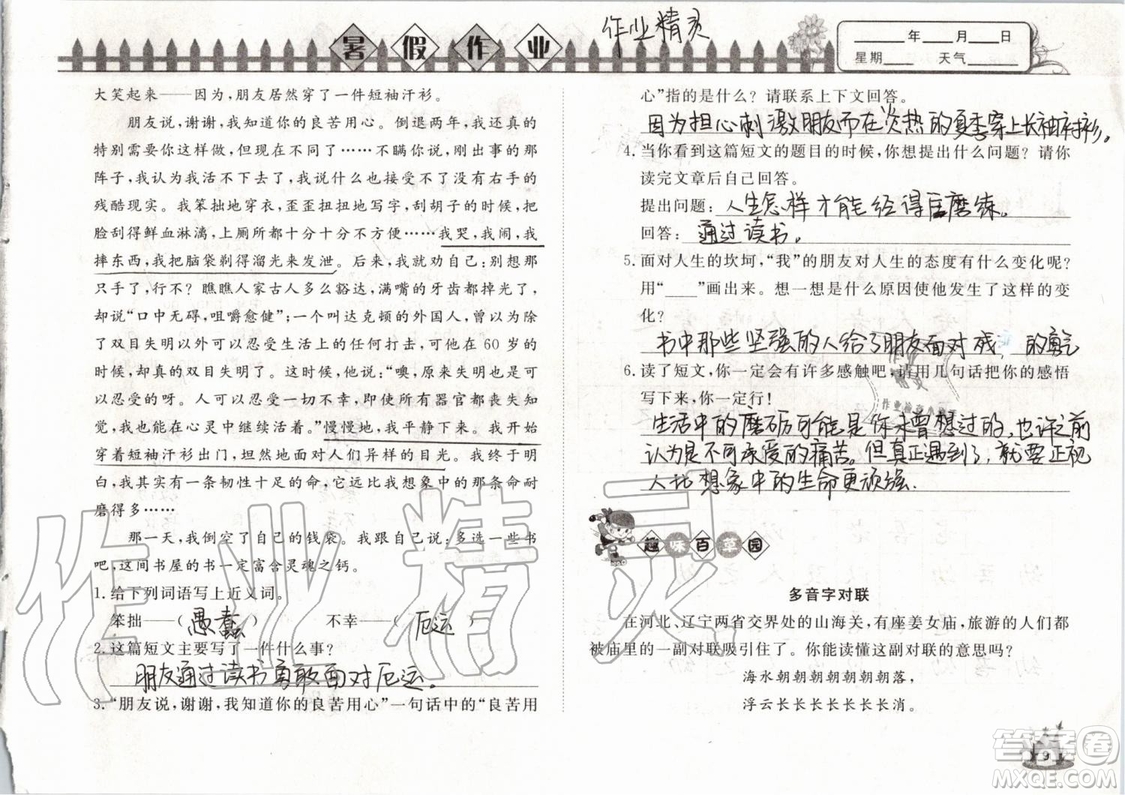 暑假作业
作业精灵
____年____月____日
星期____ 天气____
大笑起来——因为,朋友居然穿了一件短袖汗衫。
朋友说,谢谢,我知道你的良苦用心。倒退两年,我还真的
特别需要你这样做,但现在不同了……不瞒你说,刚截肢的那
阵子,我以为我活不成了。我无法接受没有右手的
残酷现实。我笨拙地穿衣,歪歪扭扭地写字,刮胡子的时候,把
脸刮得鲜血淋漓,上厕所都十分十分不方便……我哭,我闹,我
摔东西,我把脑袋剃得溜光来发泄。后来,我就劝自己:别想那
只手了!瞧瞧人家古人多么豁达,满嘴的牙齿都掉光了,
却说“口中无碍,咀嚼愈健”;一个叫达克顿的外国人,曾以为除
了双目失明以外可以忍受生活上的任何打击,可他在60岁的
时候,却真的双目失明了。这时候,他却说,“噢,原来失明也可
以忍受的呀。人可以忍受一切不幸,即使所有器官都丧失知
觉,我也能在心灵中继续活着。”慢慢地,我平静下来。我开始
穿着短袖汗衫出门,坦然地面对人们异样的目光。我终于明
白,其实我有一条韧性十足的命,它远比我想象中的那条命耐
磨得多……
那一天,我倒空了自己的钱袋。我跟朋友说,多选一些书
吧,这间书屋的书一定富含灵魂之钙。
1. 给下列词语写上近义词。
笨拙——(愚蠢) 不幸——(厄运)
2. 这篇短文主要写了一件什么事?
朋友通过读书勇敢面对厄运。
3. “朋友说,谢谢,我知道你的良苦用心”一句话中的“良苦用
心”指的是什么?请联系上下文回答。
因为担心刺激朋友而在炎热的夏季穿上长袖衬衫。
4. 当你看到这篇短文的题目的时候,你想提出什么问题?请你
读完文章后自己回答。
提出问题:人生怎样才能经得巨磨练。
回答:通过读书。
5. 面对人生的坎坷,“我”的朋友对人生的态度有什么变化?
用“____”画出来。想一想是什么原因使他发生了这样的变
化?
书中那些坚强的人给了朋友面对残 的勇气
6. 读了短文,你一定会有许多感触吧,请用几句话把你的感悟
写下来,你一定行!
生活中的磨砺可能是你未曾想过的,也许之前
认为是不可承受的痛苦。但真正遇到了,就要正视
人比想象中的生命更顽强.
趣味百草园
多音字对联
在河北、辽宁两省交界处的山海关,有座姜女庙,旅游的人们都
被庙里的一副对联吸引住了。你能读懂这副对联的意思吗?
海水朝朝朝朝朝朝朝落,
浮云长长长长长长长消。
9
作业精灵
答案卷
MXQE.COM